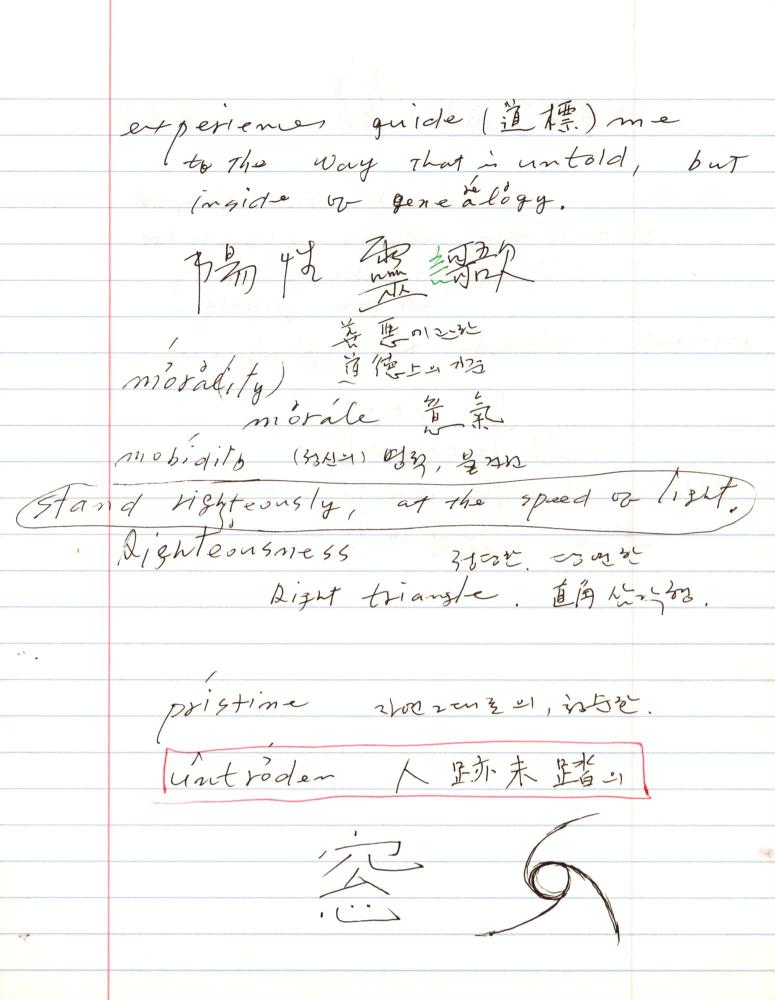 experiences guide (道標) me
to the way that is untold, but
inside of genealogy.
陽性 靈 歌
善惡에 관한
道德上의 기준
morality)
morale 意氣
mobidity (정신의) 병적, 불건전
stand righteously, at the speed of light.
Righteousness 정당한. 당연한
Right triangle. 直角 삼각형.
pristine 자연 그대로의, 청순한.
untroden 人跡未踏의
窓